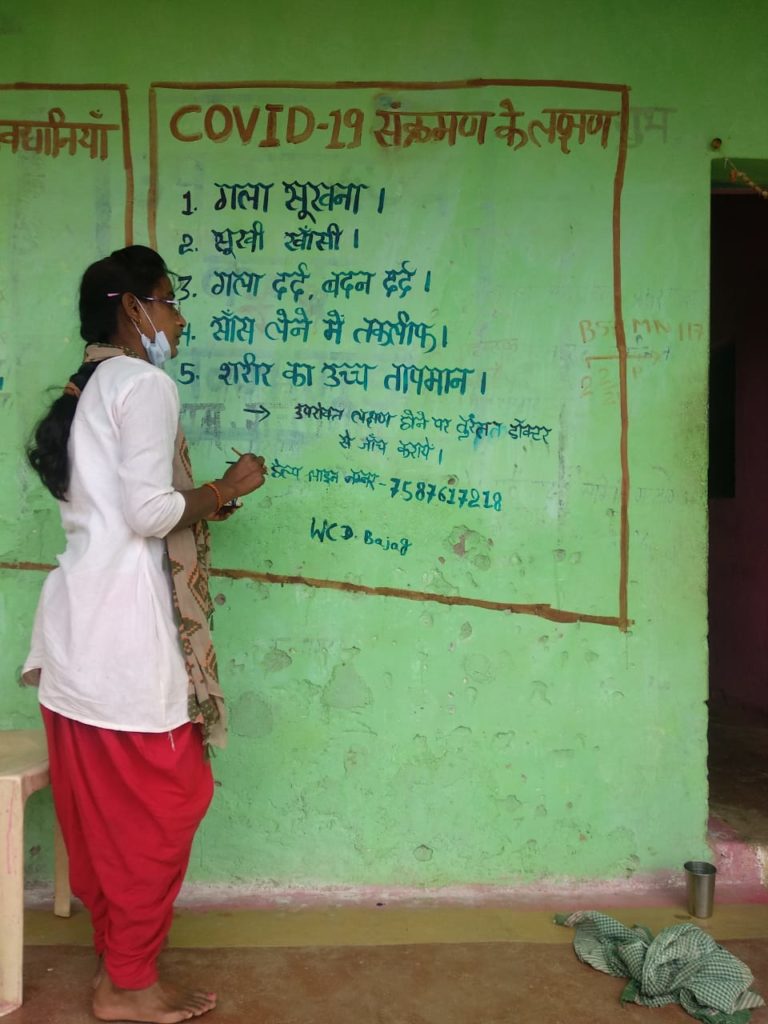 COVID-19 संक्रमण के लक्षण
1. गला सूखना।
2. सूखी खाँसी।
3. गला दर्द, बदन दर्द।
4. साँस लेने में तकलीफ।
5. शरीर का उच्च तापमान।
→ उपरोक्त लक्षण होने पर तुरन्त डॉक्टर
से जाँच कराये।
हेल्प लाइन नम्बर - 7587617218
WCD. Bajag